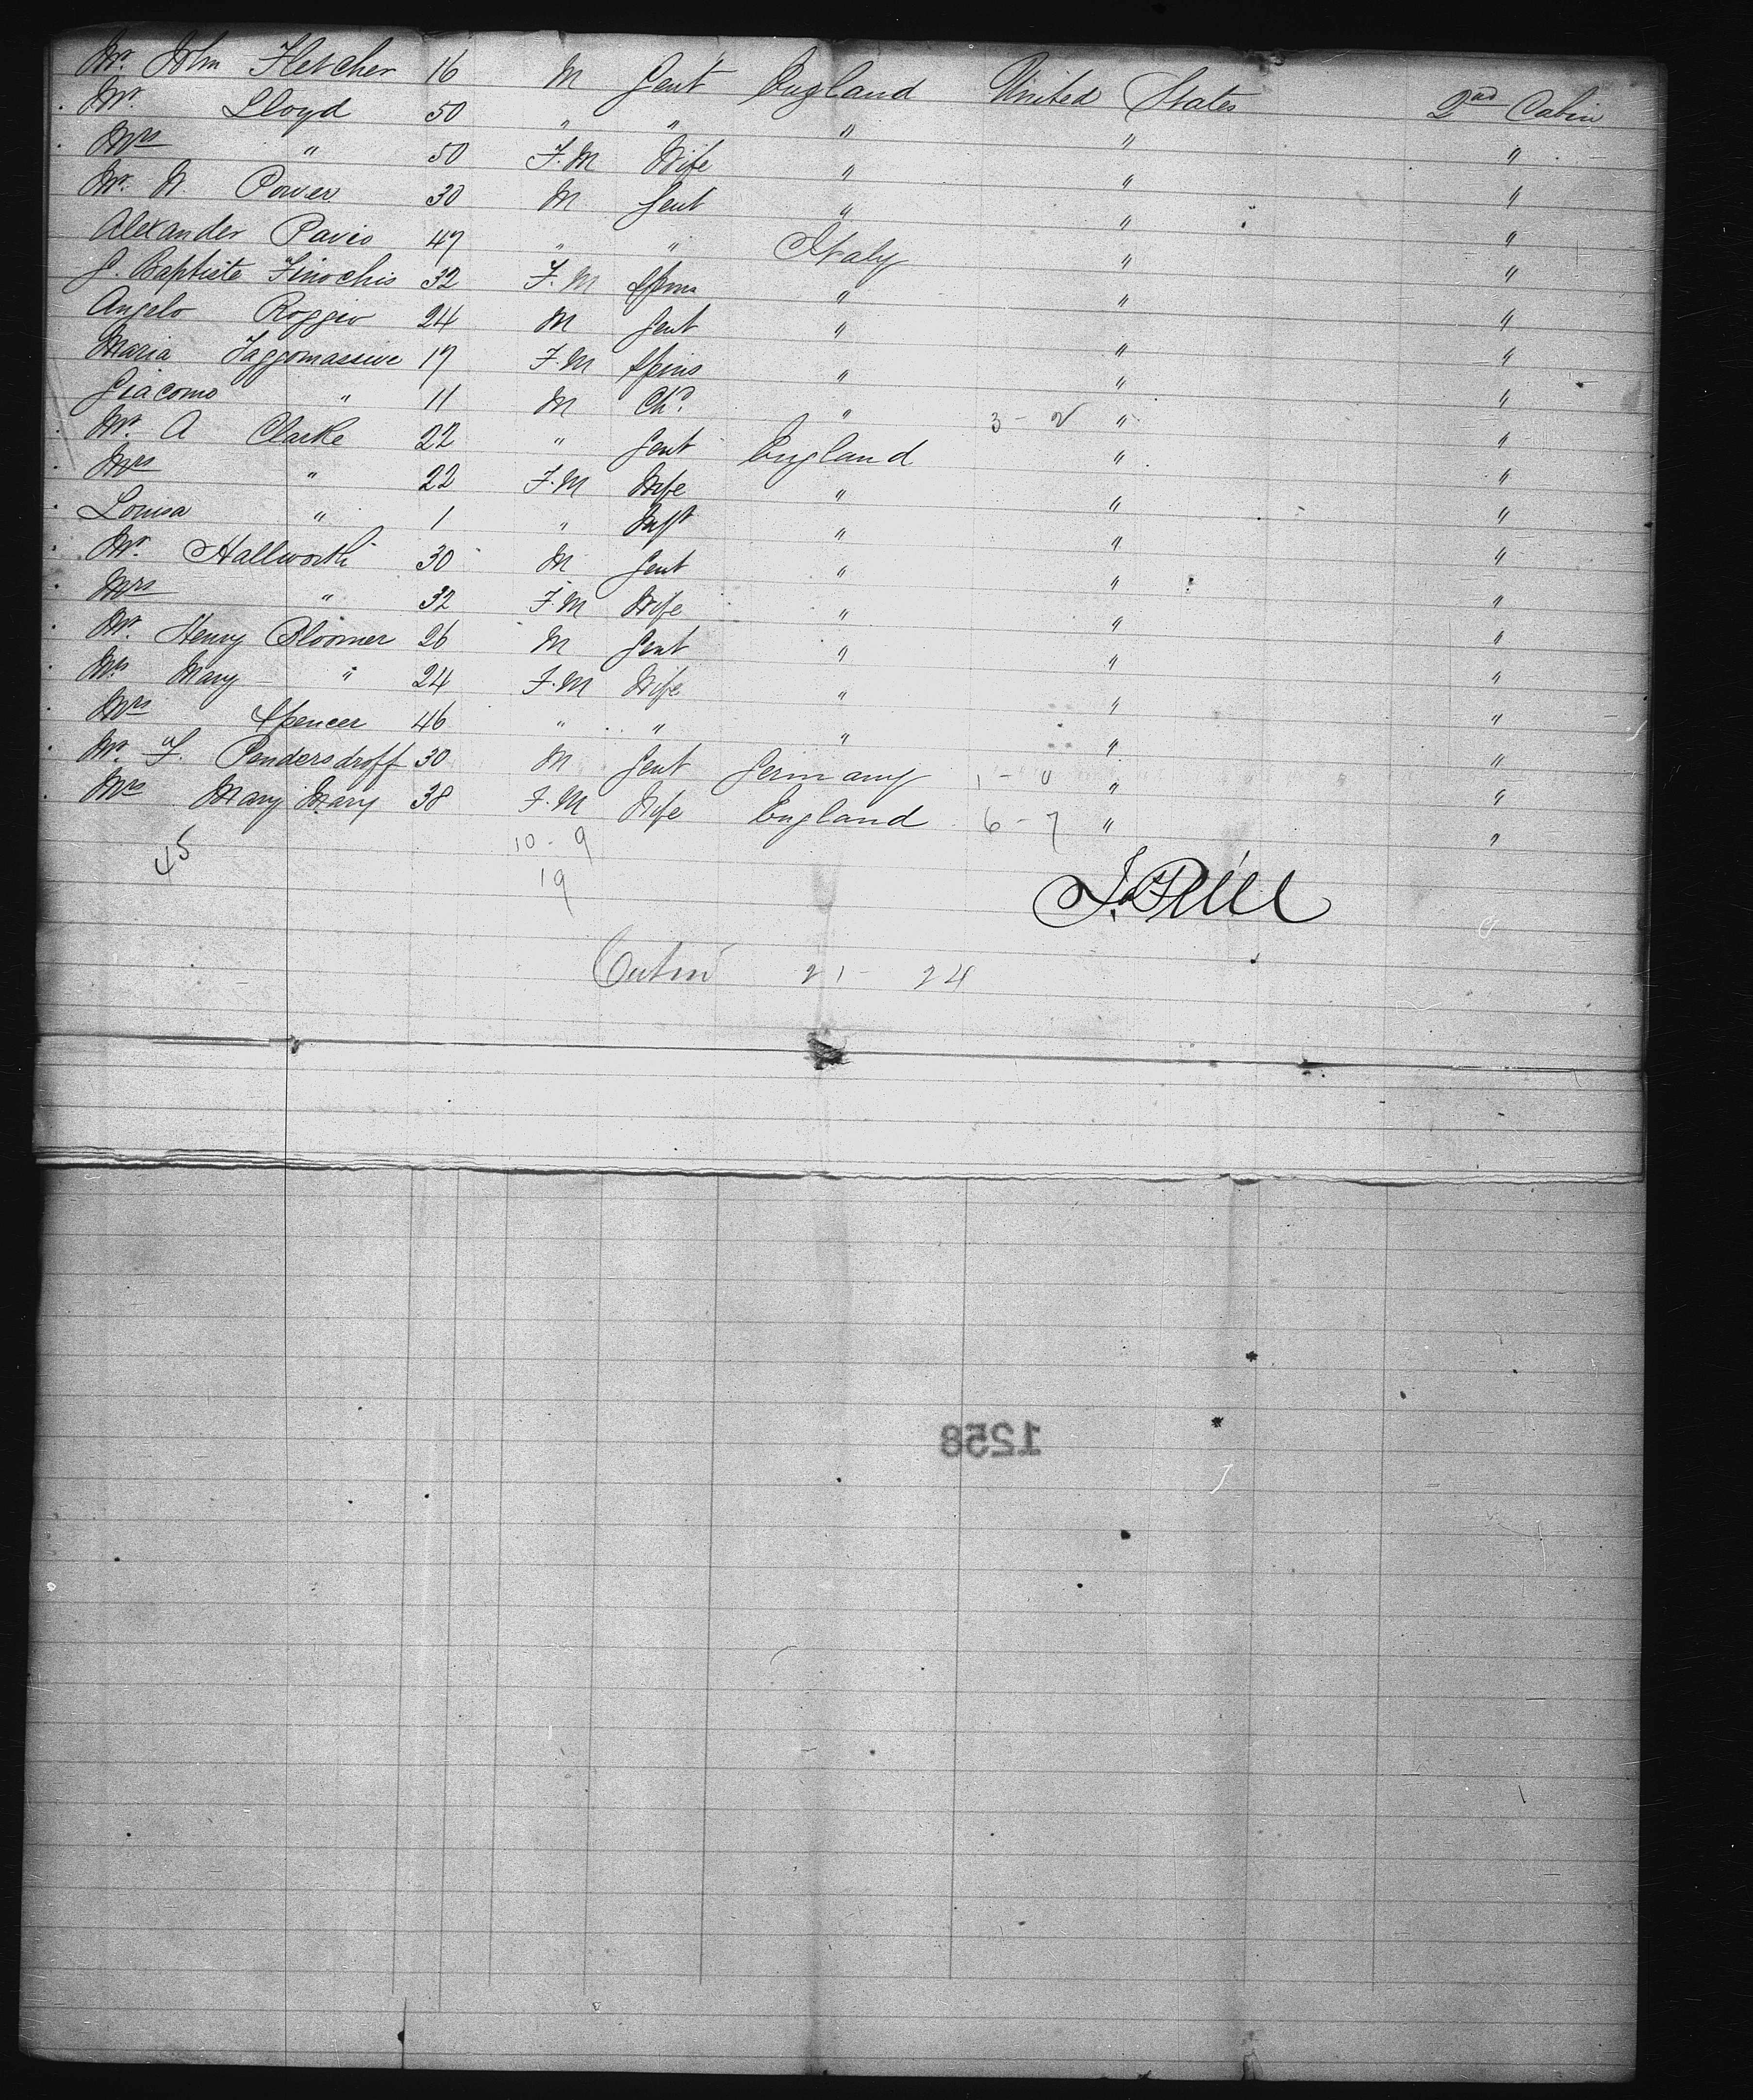 Mr. John Fletcher 16 M Gent England United States 2nd Cabin
Mr. Lloyd 50 " " " " "
Mrs " 50 F.M Wife " " "
Mr. W. Power 30 M Gent " " "
Alexander Pavio 47 " " Italy " "
J. Baptiste Finochis 32 F.M Spins " " "
Angelo Roggio 24 M Gent " " "
Maria 17 F.M Spins " " "
Giacomo " 11 M Chd " 3 - 2 " "
Mr. A Clarke 22 " Gent England " "
Mrs " 22 F.M Wife " " "
Louisa " 1 " Inft " " "
Mr. Hallworth 30 M Gent " " "
Mrs " 32 F.M Wife " " "
Mr. Henry Bloomer 26 M Gent " " "
Mrs Mary " 24 F.M Wife " " "
Mrs Spencer 46 " " " " "
Mr. F. Pendersdroff 30 M Gent Germany 1 - 0 " "
Mrs Mary Mary 38 F.M Wife England 6 - 7 " "
45 10 - 9
19
21 - 24
1258